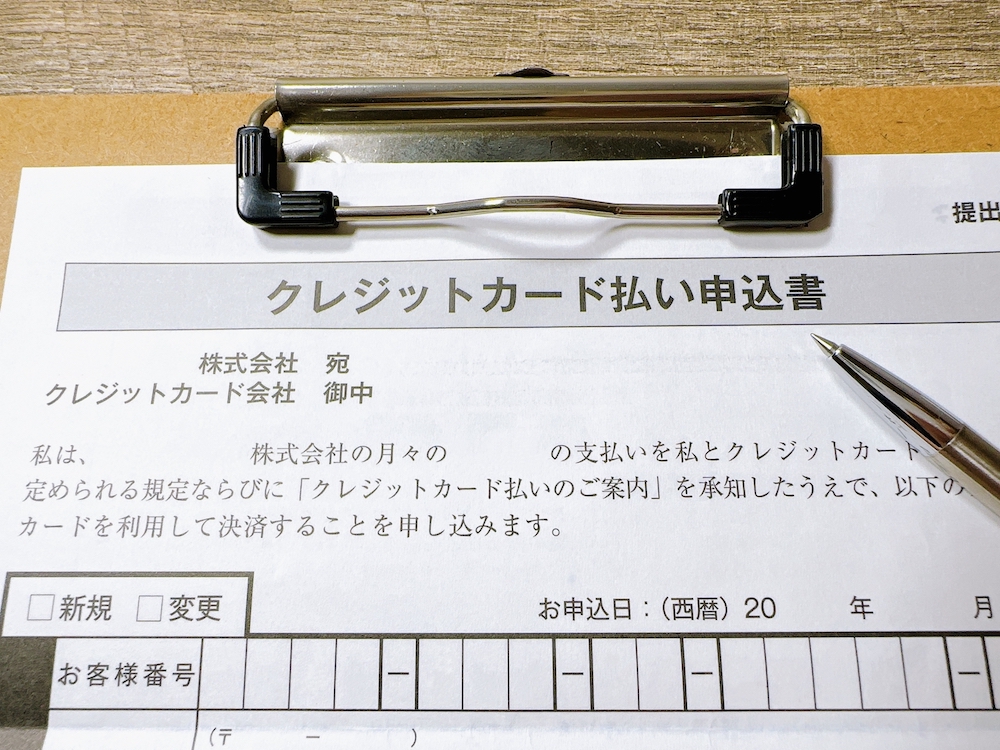 提出
クレジットカード払い申込書
株式会社 宛
クレジットカード会社 御中
私は、 株式会社の月々の の支払いを私とクレジットカート
定められる規定ならびに「クレジットカード払いのご案内」を承知したうえで、以下の
カードを利用して決済することを申し込みます。
□新規 □変更
お申込日：（西暦）20 年 月
お客様番号 － － － －
（〒 － ）